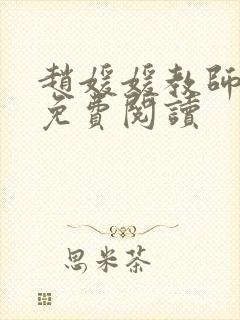 趙媛媛教師
免費閱讀
思米茶